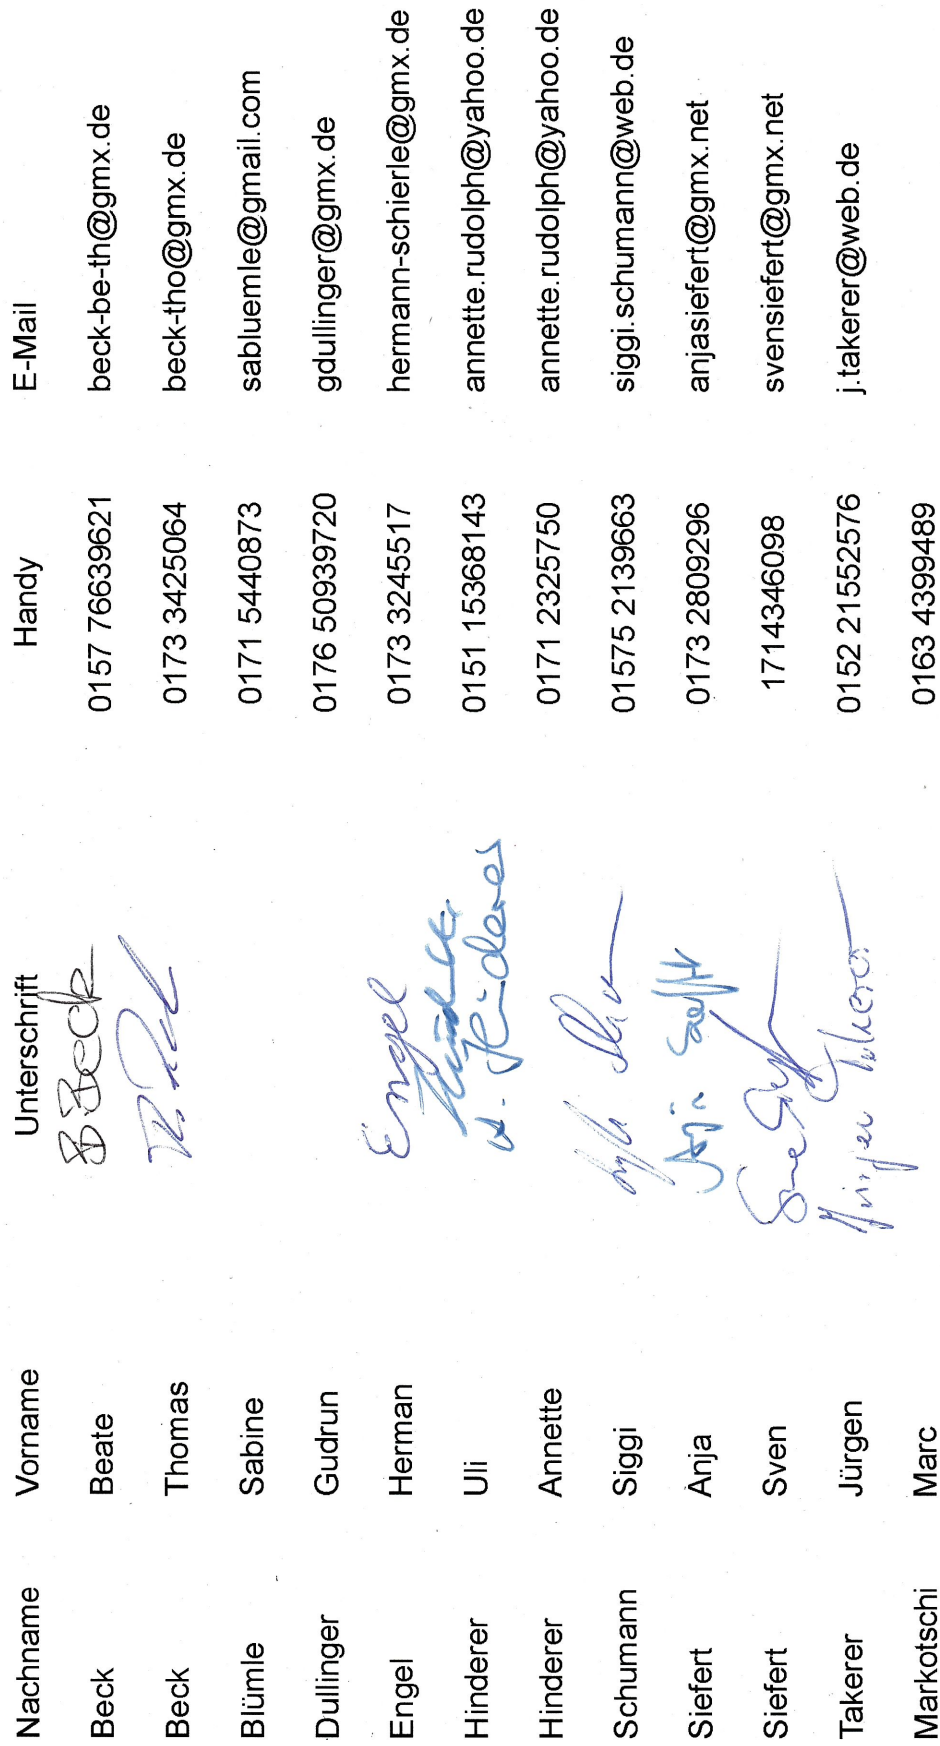 Nachname Vorname Unterschrift Handy E-Mail
Beck Beate B. Beck 0157 76639621 beck-be-th@gmx.de
Beck Thomas 0173 3425064 beck-tho@gmx.de
Blümle Sabine 0171 5440873 sabluemle@gmail.com
Dullinger Gudrun 0176 50939720 gdullinger@gmx.de
Engel Herman Engel 0173 3245517 hermann-schierle@gmx.de
Hinderer Uli 0151 15368143 annette.rudolph@yahoo.de
Hinderer Annette A. Hinderer 0171 2325750 annette.rudolph@yahoo.de
Schumann Siggi 01575 2139663 siggi.schumann@web.de
Siefert Anja Anja 0173 2809296 anjasiefert@gmx.net
Siefert Sven 1714346098 svensiefert@gmx.net
Takerer Jürgen Jürgen Takerer 0152 21552576 j.takerer@web.de
Markotschi Marc 0163 4399489